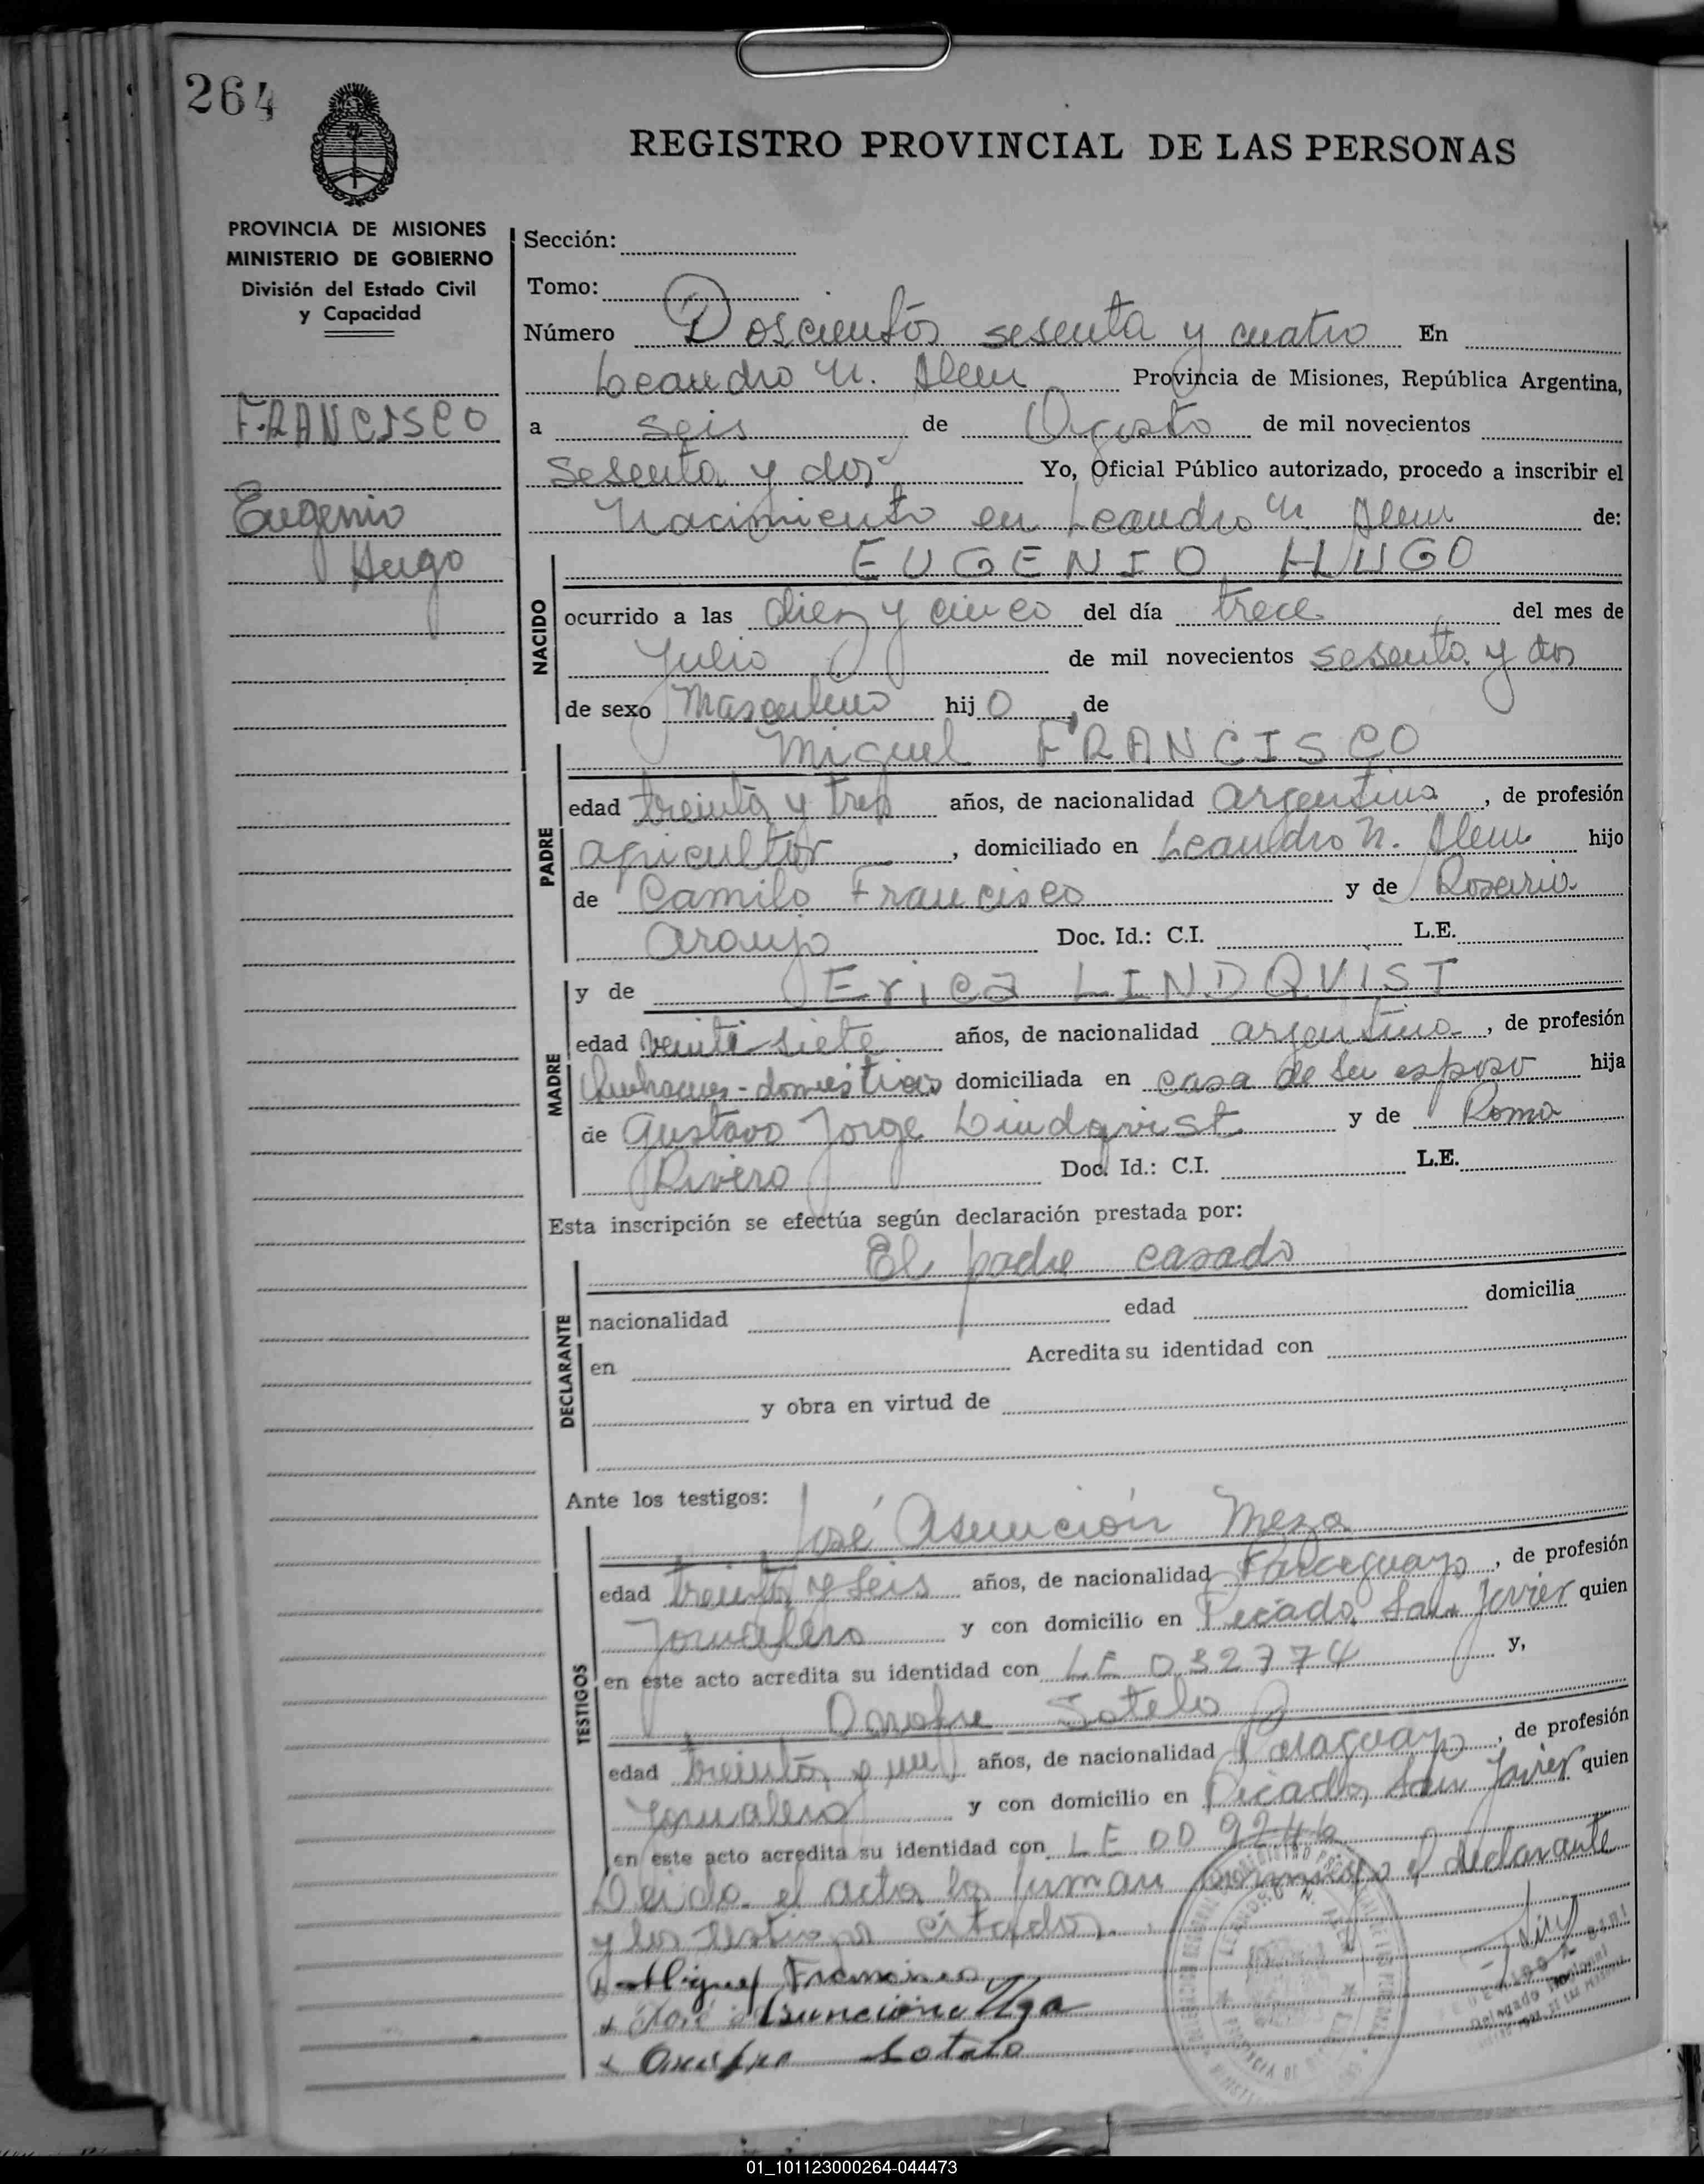 264
REGISTRO PROVINCIAL DE LAS PERSONAS
PROVINCIA DE MISIONES
MINISTERIO DE GOBIERNO
División del Estado Civil
y Capacidad
FRANCISCO
Eugenio
Hugo
Sección:
Tomo:
Número Doscientos sesenta y cuatro En
Leandro N. Alem Provincia de Misiones, República Argentina,
a seis de Agosto de mil novecientos
sesenta y dos Yo, Oficial Público autorizado, procedo a inscribir el
Nacimiento en Leandro N. Alem de:
EUGENIO HUGO
NACIDO
ocurrido a las diez y cinco del día trece del mes de
Julio de mil novecientos sesenta y dos
de sexo Masculino hijo de
Miguel FRANCISCO
PADRE
edad treinta y tres años, de nacionalidad argentina, de profesión
agricultor, domiciliado en Leandro N. Alem hijo
de Camilo Francisco y de Rosario
Araujo Doc. Id.: C.I. L.E.
y de Erica LINDQVIST
MADRE
edad veinti siete años, de nacionalidad argentina, de profesión
Quehaceres-domesticos domiciliada en casa de su esposo hija
de Gustavo Jorge Lindqvist y de Roma
Rivero Doc. Id.: C.I. L.E.
Esta inscripción se efectúa según declaración prestada por:
El padre casado
DECLARANTE
nacionalidad edad domicilia
en Acredita su identidad con
y obra en virtud de
Ante los testigos:
José Asunción Meza
TESTIGOS
edad treinta y seis años, de nacionalidad Paraguayo, de profesión
Jornalero y con domicilio en Picada San Javier quien
en este acto acredita su identidad con LE 032774 y,
Onofre Sotelo
edad treinta y un años, de nacionalidad Paraguayo, de profesión
Jornalero y con domicilio en Picada San Javier quien
en este acto acredita su identidad con LE
Leida el acta la firman conmigo el declarante
y los testigos citados.
Miguel Francisco
José Asuncion
Sotelo
01_101123000264-044473